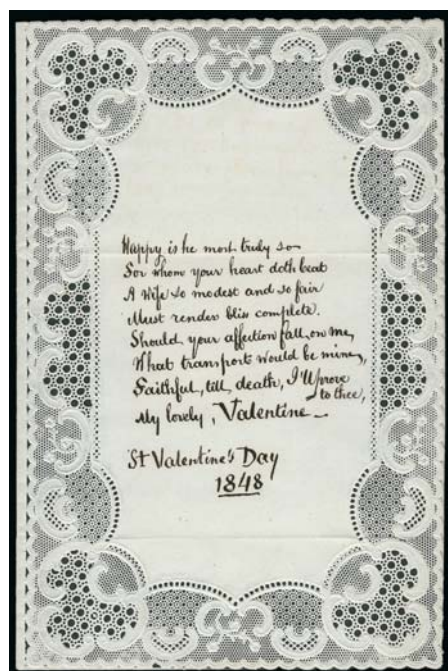 Happy is he most truly so
For whom your heart doth beat
A Wife so modest and so fair
Must render bliss complete.
Should your affection fall, on me,
What transports would be mine,
Faithful, till, death, I'll prove
to thee,
My lovely, Valentine –
St Valentine's Day
1848